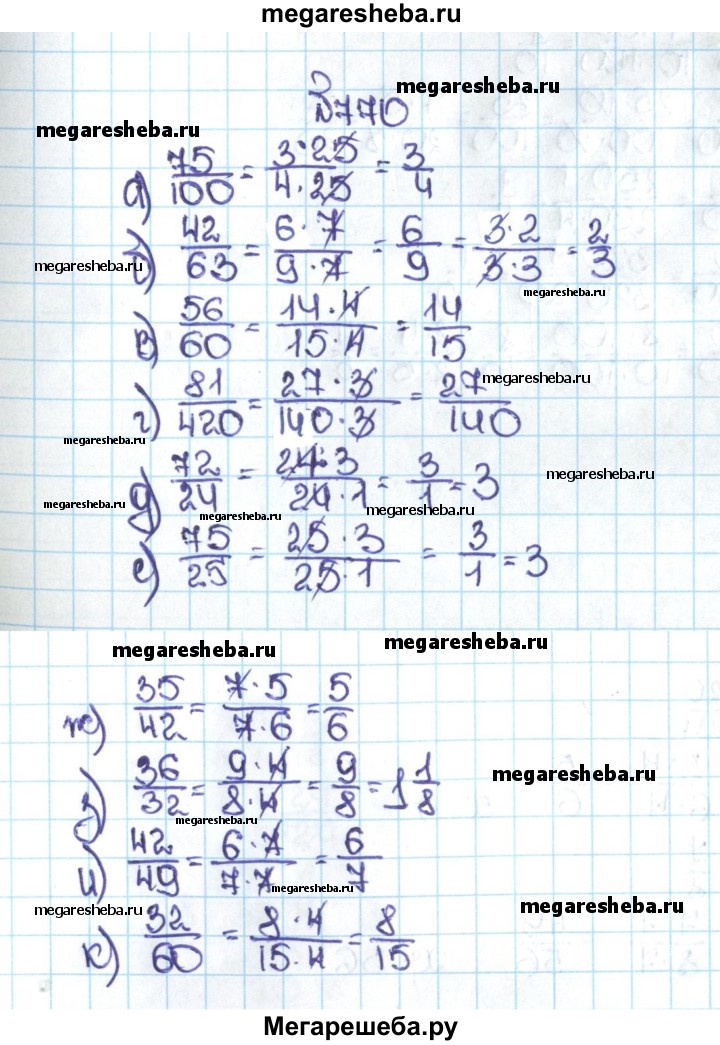 megaresheba.ru
megaresheba.ru
№770
megaresheba.ru
а) 75/100 = 3·25/4·25 = 3/4
б) 42/63 = 6·7/9·7 = 6/9 = 3·2/3·3 = 2/3
megaresheba.ru
megaresheba.ru
в) 56/60 = 14·4/15·4 = 14/15
г) 81/420 = 27·3/140·3 = 27/140
megaresheba.ru
megaresheba.ru
д) 72/24 = 24·3/24·1 = 3/1 = 3
megaresheba.ru
megaresheba.ru
megaresheba.ru
megaresheba.ru
е) 75/25 = 25·3/25·1 = 3/1 = 3
megaresheba.ru
megaresheba.ru
ж) 35/42 = 7·5/7·6 = 5/6
з) 36/32 = 9·4/8·4 = 9/8 = 1 1/8
megaresheba.ru
megaresheba.ru
и) 42/49 = 6·7/7·7 = 6/7
megaresheba.ru
megaresheba.ru
megaresheba.ru
к) 32/60 = 8·4/15·4 = 8/15
Мегарешеба.ру